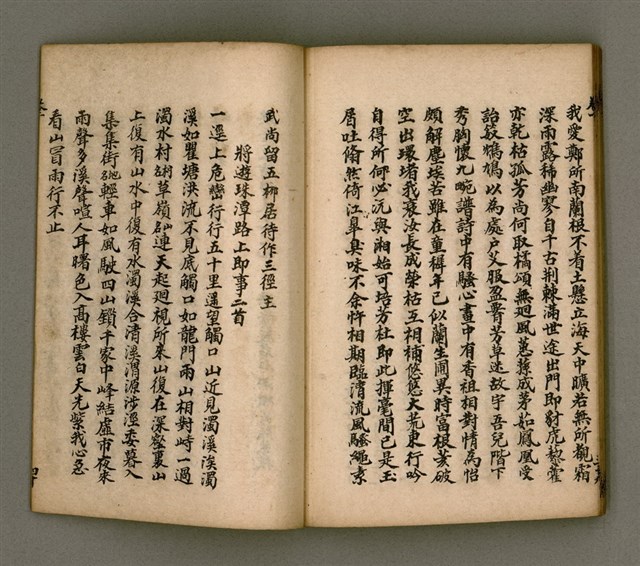 我愛鄭所南蘭根不有土懸立海天中曠若無所覩霜
深雨露稀幽寥自千古荆棘滿世途出門即豺虎藜藿
亦乾枯孤芳尚何取橘頌無廻風蕙蓀成茅如鳳凰受
詒鴆鳩以為處户艾服盈胥芳草迷故宇吾兒階下
秀胸懷九畹譜詩中有騷心畫中有香祖相對情為怡
頗解塵埃苦雖在童穉年已似蘭生圃異時富根荄破
空出環堵我衰汝長成榮枯互相補悠悠大荒東行吟
自得所何必沅與湘始可培芳杜即此揮毫間已是玉
屑吐翛然倚江臯臭味不余忤相期臨清流風騷繩東
武尚留五柳居待作三徑主
將遊珠潭路上即事二首
一逕上危巒行行五十里遥望觸口山近見濁溪涘濁
溪如瞿塘洪流不見底觸口如龍門雨山相對峙一過
濁水村網草嶺連天起迴視所來山復在深壑裏山
上復有山水中復有水濁溪合清溪渭源涉涇委暮入
集集街輕車如風駛四山鎖千家中峰結虛市夜來
雨聲多溪聲喧人耳曙色入高樓雲白天光紫我心急
看山冒雨行不止